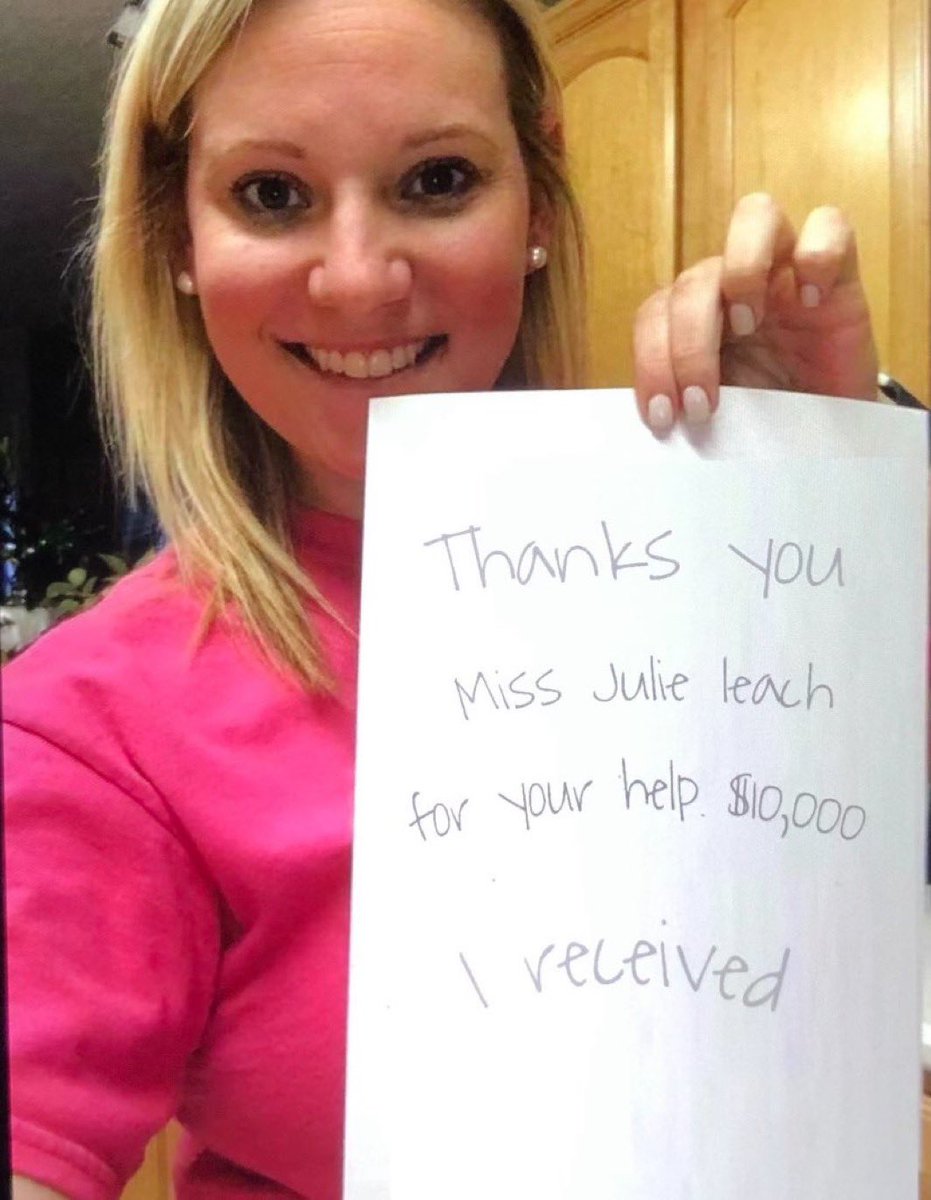 Thanks you
Miss Julie leach
for your help. $10,000
I received